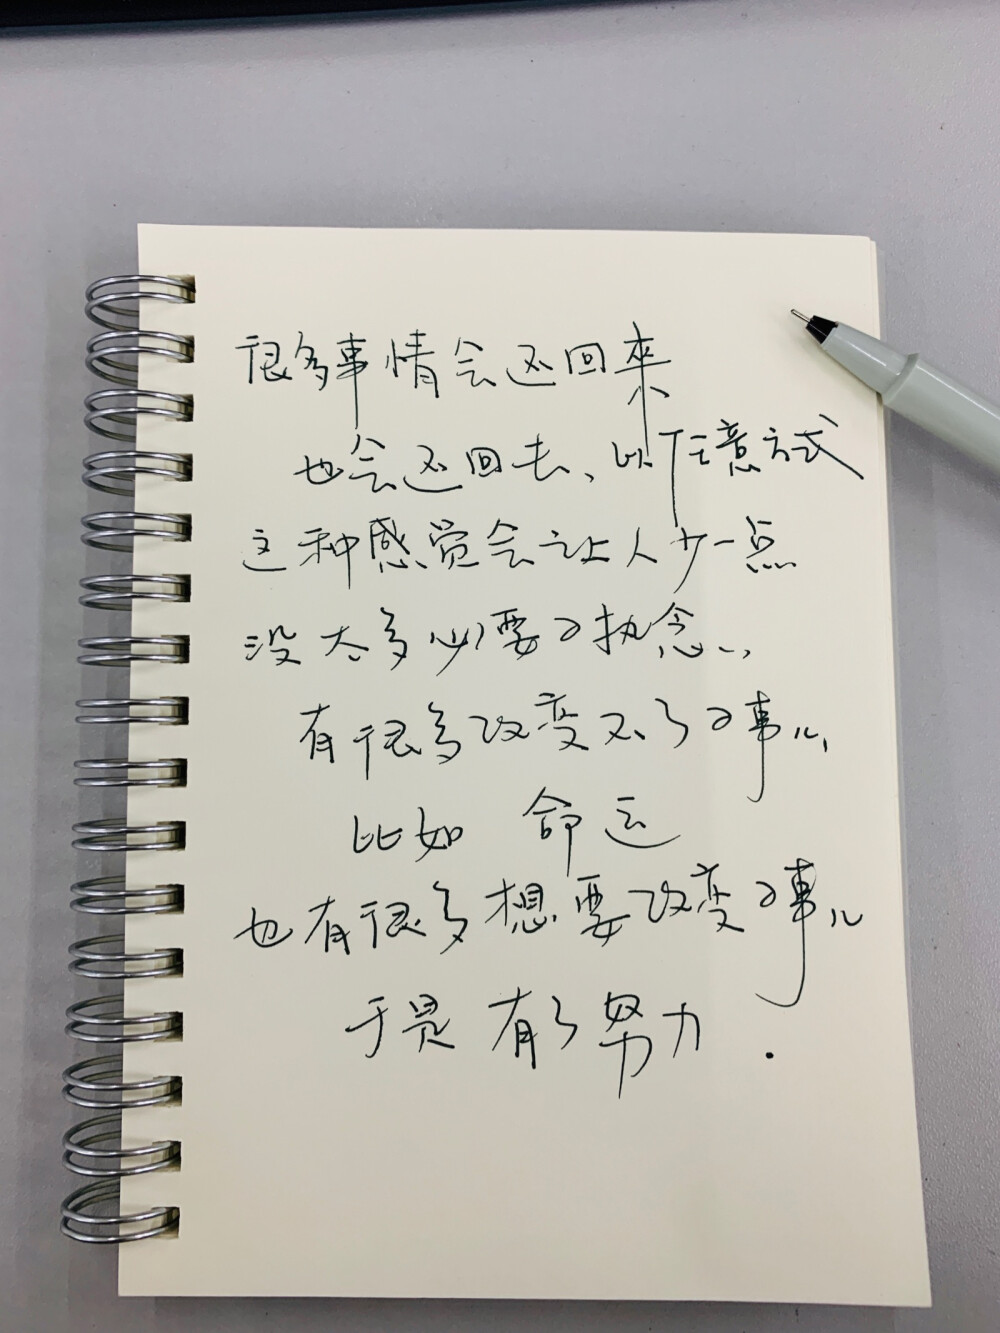 很多事情会还回來
也会还回去、以任意方式
这种感觉会让人少一点
没太多必要的执念、
有很多改变不了的事儿,
比如 命运
也有很多想要改变的事儿
于是 有了努力.